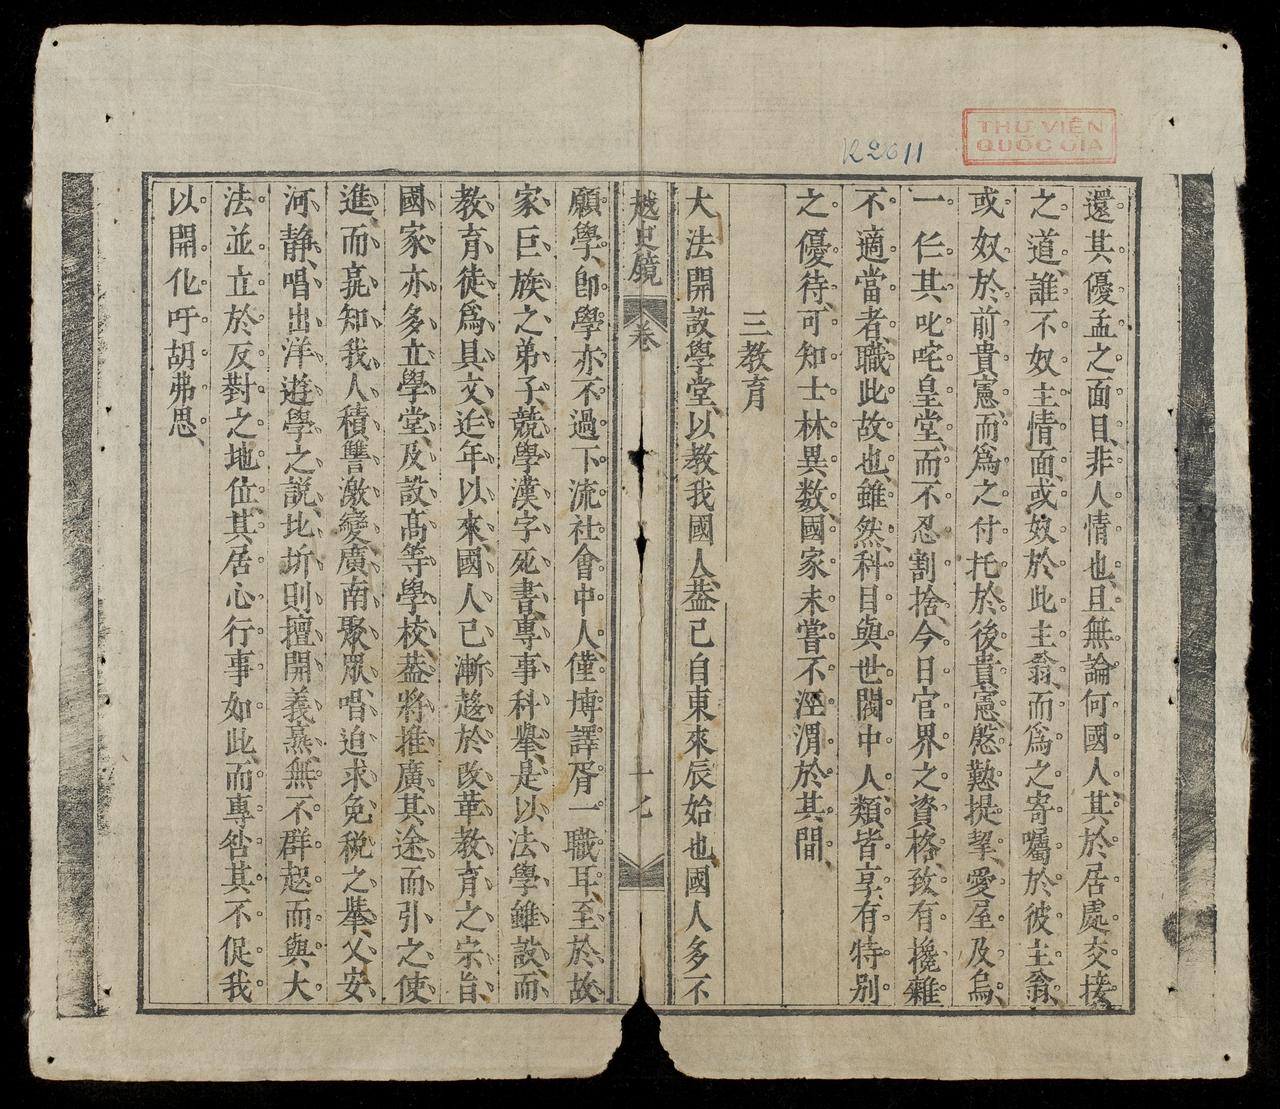 THƯ VIỆN
QUỐC GIA
R22611
還其優孟之面目、非人情也、且無論何國人、其於居處交接
之道、誰不奴主情面、或奴於此主翁、而爲之寄囑於彼主翁、
或奴於前貴憲、而爲之付托於後貴憲、慇懃提挈、愛屋及烏、
一任其叱咤皇堂、而不忍割捨、今日官界之資格、致有攙雜
不適當者、職此故也、雖然科目與世閥中人類皆享有特別
之優待、可知士林異数、國家未嘗不涇渭於其間、
三教育
大法開設學堂、以教我國人、葢已自東來辰始也、國人多不
越史鏡 卷 十七
願學、卽學亦不過下流社會中人、僅博譯胥一職耳、至於故
家巨族之弟子、競學漢字死書、專事科擧、是以法學雖設、而
教育徒爲具文、近年以來、國人已漸趍於改革教育之宗旨、
國家亦多立學堂、及設高等學校、葢將推廣其途、而引之使
進、而孰知我人積讐激變、廣南聚眾、唱迫求免税之擧、乂安
河静、唱出洋遊學之説、北圻則擅開義𡪇、無不群起而與大
法並立於反對之地位、其居心行事如此、而專咎其不促我
以開化、吁胡弗思、